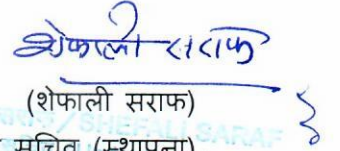 शेफाली सराफ
(शेफाली सराफ)
/ SHEFALI SARAF
सचिव (स्थापना)